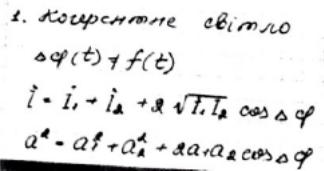 1. Когерентне світло
Δφ(t) ≠ f(t)
i = i₁ + i₂ + 2 √i₁i₂ cos Δφ
a² = a₁² + a₂² + 2a₁a₂ cos Δφ